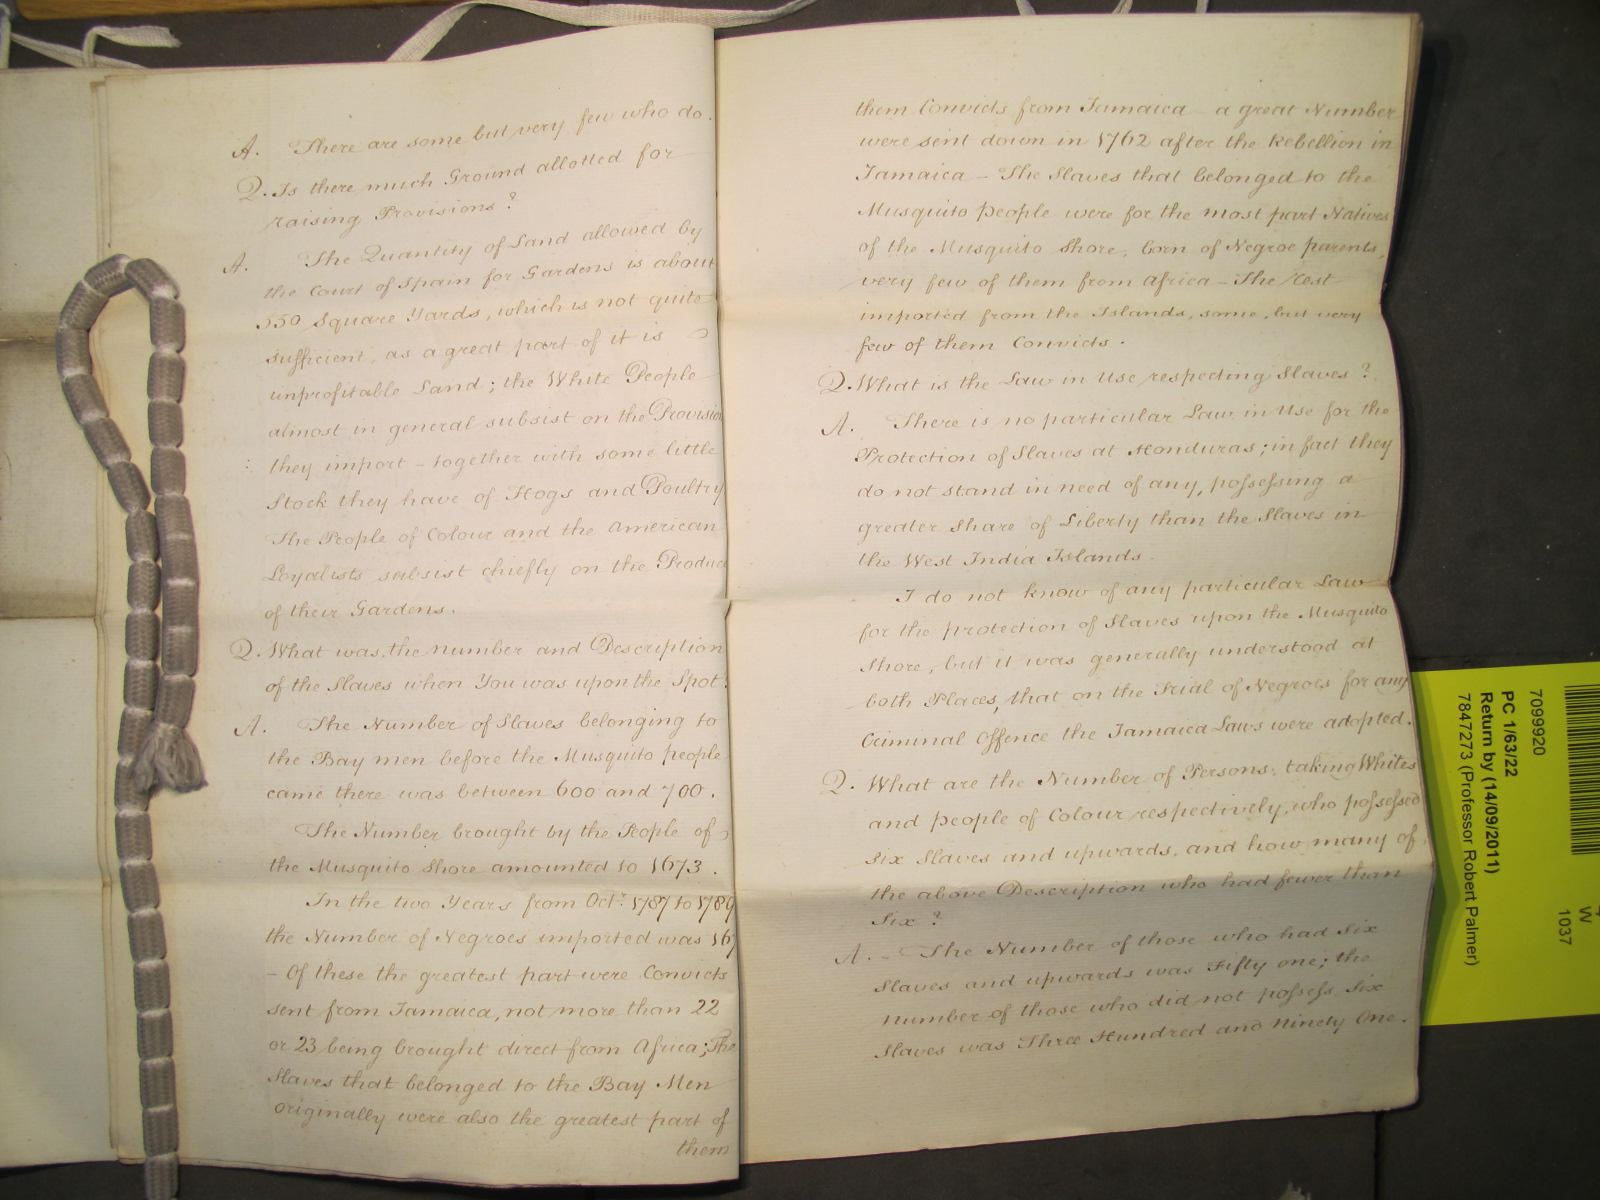 A. There are some but very few who do.
Q. Is there much Ground allotted for
raising Provisions?
A. The Quantity of Land allowed by
the Court of Spain for Gardens is about
550 Square Yards, which is not quite
sufficient, as a great part of it is
unprofitable Land; the White People
almost in general subsist on the Provision
they import – together with some little
Stock they have of Hogs and Poultry
The People of Colour and the American
Loyalists subsist chiefly on the Produce
of their Gardens.
Q. What was the number and Description
of the Slaves when You was upon the Spot.
A. The Number of Slaves belonging to
the Bay men before the Musquito people
came there was between 600 and 700.
The Number brought by the People of
the Musquito Shore amounted to 1673.
In the two Years from Octr. 1787 to 1789
the Number of Negroes imported was
– Of these the greatest part were Convicts
sent from Jamaica, not more than 22
or 23 being brought direct from Africa; The
Slaves that belonged to the Bay Men
originally were also the greatest part of
them
them Convicts from Jamaica – a great Number
were sent down in 1762 after the Rebellion in
Jamaica – The Slaves that belonged to the
Musquito People were for the most part Natives
of the Musquito Shore, born of Negroe parents,
very few of them from Africa – The rest
imported from the Islands, some, but very
few of them Convicts.
Q. What is the Law in Use respecting Slaves?
A. There is no particular Law in Use for the
Protection of Slaves at Honduras; in fact they
do not stand in need of any, possessing a
greater Share of Liberty than the Slaves in
the West India Islands.
I do not know of any particular Law
for the protection of Slaves upon the Musquito
Shore, but it was generally understood at
both Places, that on the Trial of Negroes for any
Criminal Offence the Jamaica Laws were adopted.
Q. What are the Number of Persons, taking Whites
and people of Colour respectively, who possessed
six Slaves and upwards, and how many of
the above Description who had fewer than
Six?
A. – The Number of those who had Six
Slaves and upwards was Fifty one; the
number of those who did not possess Six
Slaves was Three Hundred and ninety One.
7099920
PC 1/63/22
Return by (14/09/2011)
7847273 (Professor Robert Palmer)
W
1037